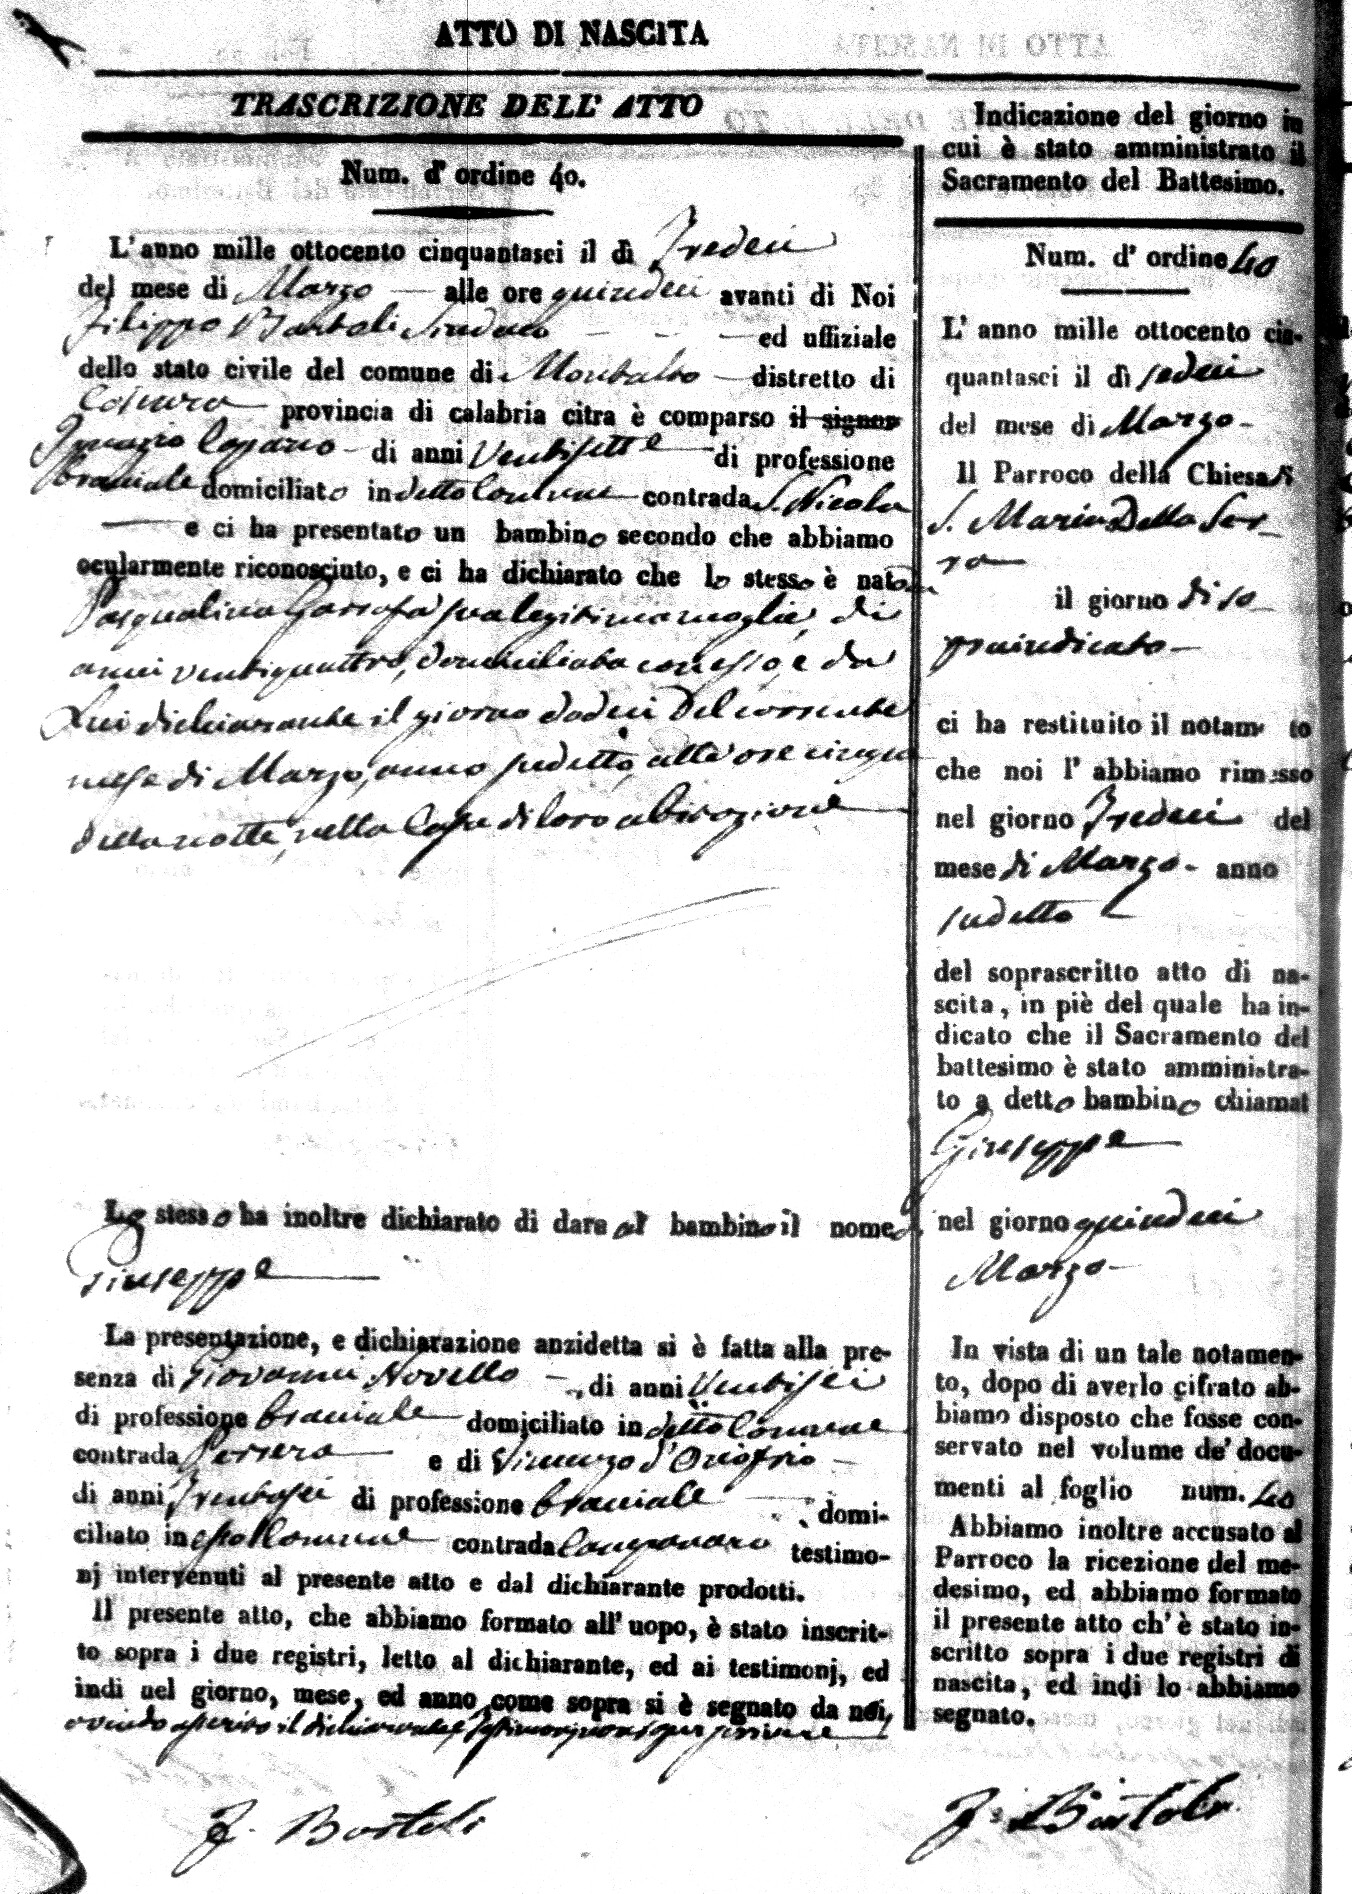 ATTO DI NASCITA
TRASCRIZIONE DELL' ATTO
Num. d' ordine 40.
L' anno mille ottocento cinquantasei il dì Tredeci
del mese di Marzo alle ore quindeci avanti di Noi
Filippo Bartoli Sindaco ed uffiziale
dello stato civile del comune di Montalto distretto di
Cosenza provincia di calabria citra è comparso il signor
Ignazio di anni Ventisette di professione
Bracciale domiciliato in detto Comune contrada S. Nicola
e ci ha presentato un bambino secondo che abbiamo
ocularmente riconosciuto, e ci ha dichiarato che lo stesso è nato da
Pasqualina sua legitima moglie, di
anni ventiquattro, domiciliata con esso, e da
Lui dichiarante il giorno dodeci Del corrente
mese di Marzo, anno sudetto, alle ore cinque
della notte, nella Casa di loro abitazione
Lo stesso ha inoltre dichiarato di dare al bambino il nome di
Giuseppe
La presentazione, e dichiarazione anzidetta si è fatta alla pre-
senza di Giovanni Novello di anni Ventisei
di professione braciale domiciliato in detto Comune
contrada e di Vincenzo d'Onofrio
di anni Trentasei di professione braciale domi-
ciliato in esso Comune contrada testimo-
nj intervenuti al presente atto e dal dichiarante prodotti.
Il presente atto, che abbiamo formato all' uopo, è stato inscrit-
to sopra i due registri, letto al dichiarante, ed ai testimonj, ed
indi nel giorno, mese, ed anno come sopra si è segnato da noi,
avendo asserito il dichiarante, e Testimonj non saper scrivere
F. Bartoli
Indicazione del giorno in
cui è stato amministrato il
Sacramento del Battesimo.
Num. d' ordine 40
L' anno mille ottocento cin-
quantasei il dì sedeci
del mese di Marzo
Il Parroco della Chiesa di
S. Maria Della Ser-
ra
il giorno di so-
praindicato
ci ha restituito il notamento
che noi l' abbiamo rimesso
nel giorno Tredeci del
mese di Marzo anno
sudetto
del soprascritto atto di na-
scita, in piè del quale ha in-
dicato che il Sacramento del
battesimo è stato amministra-
to a detto bambino chiamat
Giuseppe
nel giorno quindeci
Marzo
In vista di un tale notamen-
to, dopo di averlo cifrato ab-
biamo disposto che fosse con-
servato nel volume de' docu-
menti al foglio num. 40
Abbiamo inoltre accusato al
Parroco la ricezione del me-
desimo, ed abbiamo formato
il presente atto ch' è stato in-
scritto sopra i due registri di
nascita, ed indi lo abbiamo
segnato.
F. Bartoli